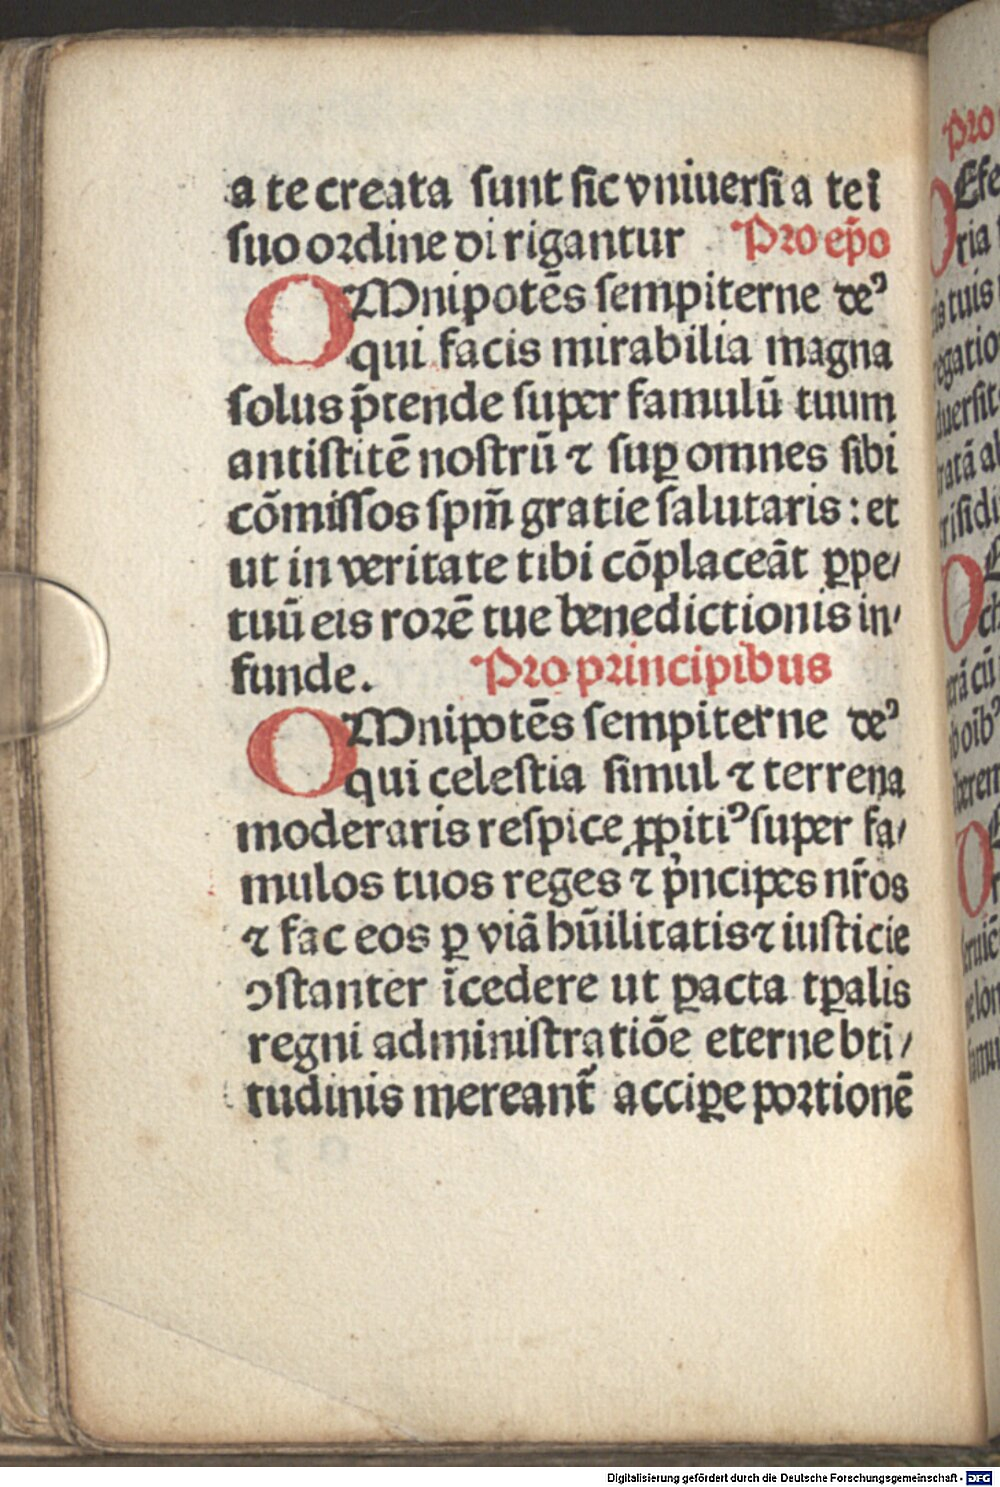 a te creata sunt sic vniuersi a te ī
suo ordine dirigantur Pro ep̄o
OMnipotēs sempiterne deꝰ
qui facis mirabilia magna
solus p̄tende super famulū tuum
antistitē nostrū ⁊ suꝑ omnes sibi
cōmissos sp̄m̄ gratie salutaris : et
ut in veritate tibi cōplaceāt ꝑpe/
tuū eis rorē tue benedictionis in/
funde. Pro principibus
OMnipotēs sempiterne deꝰ
qui celestia simul ⁊ terrena
moderaris respice ꝓpitiꝰ super fa/
mulos tuos reges ⁊ p̍ncipes nr̄os
⁊ fac eos ꝑ viā hūilitatis ⁊ iusticie
ꝯstanter īcedere ut ꝑacta tꝑalis
regni administratiōe eterne bti/
tudinis mereant̄ acciꝑe portionē
Pro
Efe
ria
is tuis
egatio
uersit
ratā a
risidi
erā cū
b oībꝰ
famu
Digitalisierung gefördert durch die Deutsche Forschungsgemeinschaft - DFG